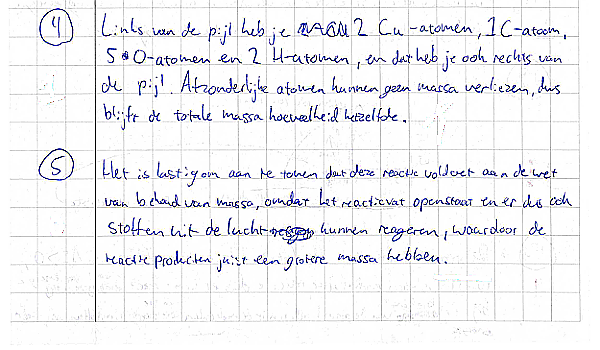 4 Links van de pijl heb je 2 Cu-atomen, 1 C-atoom,
5 O-atomen en 2 H-atomen, en dat heb je ook rechts van
de pijl. Afzonderlijke atomen kunnen geen massa verliezen, dus
blijft de totale massa hoeveelheid hetzelfde.
5 Het is lastig om aan te tonen dat deze reactie voldoet aan de wet
van behoud van massa, omdat het reactievat openstaat en er dus ook
stoffen uit de lucht kunnen reageren, waardoor de
reactie producten juist een grotere massa hebben.